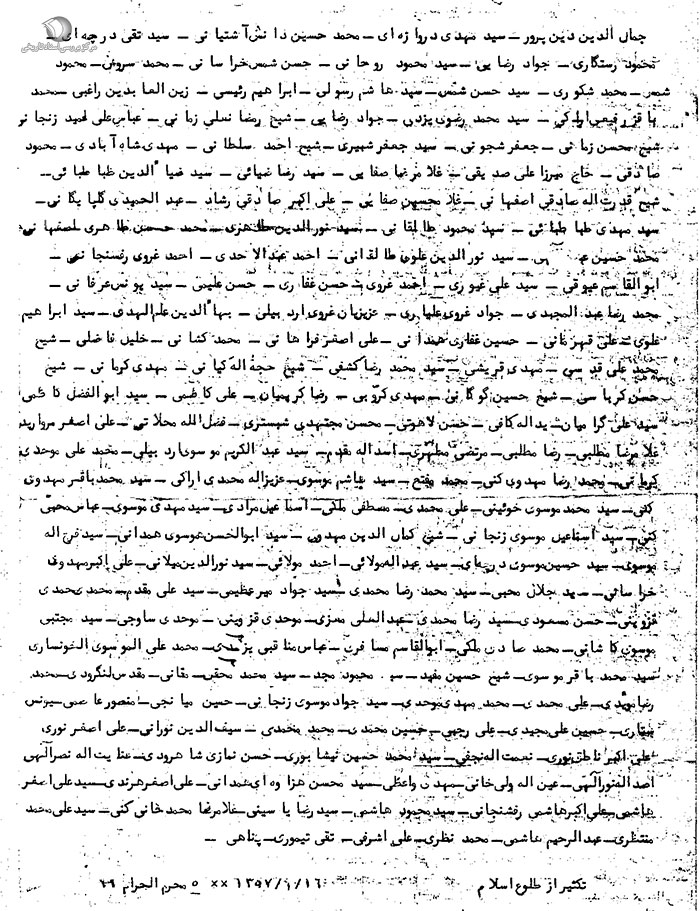 مرکز بررسی اسناد تاریخی
جمال الدین دین پرور – سید مهدی دروازه ای – محمد حسین دانش آشتیانی – سید تقی درچه ای –
محمود رستگاری – جواد رضایی – سید محمود روحانی – حسن شمس خراسانی – محمد سروش – محمود
شمس – محمد شکوری – سید حسن شمس – سید هاشم رسولی – ابراهیم رئیسی – زین العابدین راغبی – محمد
باقر رفیعی – سید محمد رضوی یزدی – جواد رضایی – شیخ رضا نسلی زمانی – عباسعلی عمید زنجانی
شیخ محسن زمانی – جعفر شجونی – سید جعفر شبیری – شیخ احمد سلطانی – مهدی شاه آبادی – محمود
صادقی – حاج میرزا علی صدیقی – غلامرضا صفایی – سید رضا ضیائی – سید ضیاالدین طباطبائی –
شیخ قدرت اله صادقی اصفهانی – غلامحسین صفایی – علی اکبر صادقی رشاد – عبدالحمیدی گلپایگانی –
سید مهدی طباطبائی – سید محمود طالقانی – سید نورالدین طاهری – محمد حسین طاهری اصفهانی
محمد حسین – سید نورالدین علوی طالقانی – احمد عبدالاحدی – احمد غروی رفسنجانی –
ابوالقاسم عیوقی – سید علی غیوری – احمد غروی – حسن غفاری – حسن علیمی – سید یونس عرفانی –
محمد رضا عبدالمجیدی – جواد غروی علیاری – عزیزیان غروی اردبیلی – بهاالدین علم الهدی – سید ابراهیم
علوی – علی قهرمانی – حسین غفاری همدانی – علی اصغر فراهانی – محمد کشانی – خلیل فاضلی – شیخ
محمد علی قدسی – مهدی قریشی – سید محمد رضا کشفی – شیخ حجة اله کیانی – مهدی کرمانی – شیخ
حسن کرباسی – شیخ حسین گوگانی – مهدی کروبی – رضا کریمیان – علی کاظمی – سید ابوالفضل کاظمی
سید علی گرامیان – یداله کافی – حسن لاهوتی – محسن مجتهدی شبستری – فضل الله محلاتی – علی اصغر مروارید
غلامرضا مطلبی – رضا مطلبی – مرتضی مطهری – اسداله مقدم – سید عبدالکریم موسوی اردبیلی – محمد علی موحدی
کرمانی – محمد رضا مهدوی کنی – محمد مفتح – سید هاشم موسوی – عزیزاله محمدی اراکی – سید محمدباقر مهدوی
کنی – سید محمد موسوی خوئینی – علی محمدی – مصطفی ملکی – اسماعیل مرادی – سید مهدی موسوی – عباس محبی
کنی – سید اسماعیل موسوی زنجانی – شیخ کمال الدین مهدوی – سید ابوالحسن موسوی همدانی – سید فرج اله
موسوی – سید حسین موسوی درچه ای – سید عبداله مولائی – احمد مولائی – سید نورالدین میلانی – علی اکبر مهدوی
خراسانی – سید جلال محبی – سید محمد رضا محمدی – سید جواد میرعظیمی – سید علی مقدم – محمد محمدی
قزوینی – حسن مسعودی – سید رضا محمدی – عبدالعلی معزی – موحدی قزوینی – موحدی ساوجی – سید مجتبی
موسوی کاشانی – محمد صادق ملکی – ابوالقاسم مسافری – عباس مناقبی یزدی – محمد علی الموسوی الخونساری
سید محمد باقر موسوی – شیخ حسین مفید – محمود مجد – سید محمد محقق – مقانی – مقدس لنگرودی – محمد
رضا مؤیدی – علی محمدی – محمد مهدی موحدی – سید جواد موسوی زنجانی – حسین میانجی – منصور عاصمی – یونس
– حسین علی مجیدی – علی رجبی – حسین محمدی – محمد محمدی – سیف الدین نورانی – علی اصغر نوری
علی اکبر ناطق نوری – نعمت اله نجفی – سید محمد حسین نیشابوری – حسن نمازی شاهرودی – عنایت اله نصرالهی
اصداله نورالهی – عین اله ولی خانی – مهدی واعظی – سید محسن هزاوه ای همدانی – علی اصغر هرندی – سید علی اصغر
هاشمی – علی اکبر هاشمی رفسنجانی – سید محمود هاشمی – سید رضا یاسینی – غلامرضا محمد خانی کنی – سید علی محمد
منتظری – عبدالرحیم هاشمی – محمد نظری – علی اشرفی – تقی تیموری – پناهی –
تکثیر از طلوع اسلام ۱۳۵۷/۱/۱۶ ×× ۵ محرم الحرام ۹۹